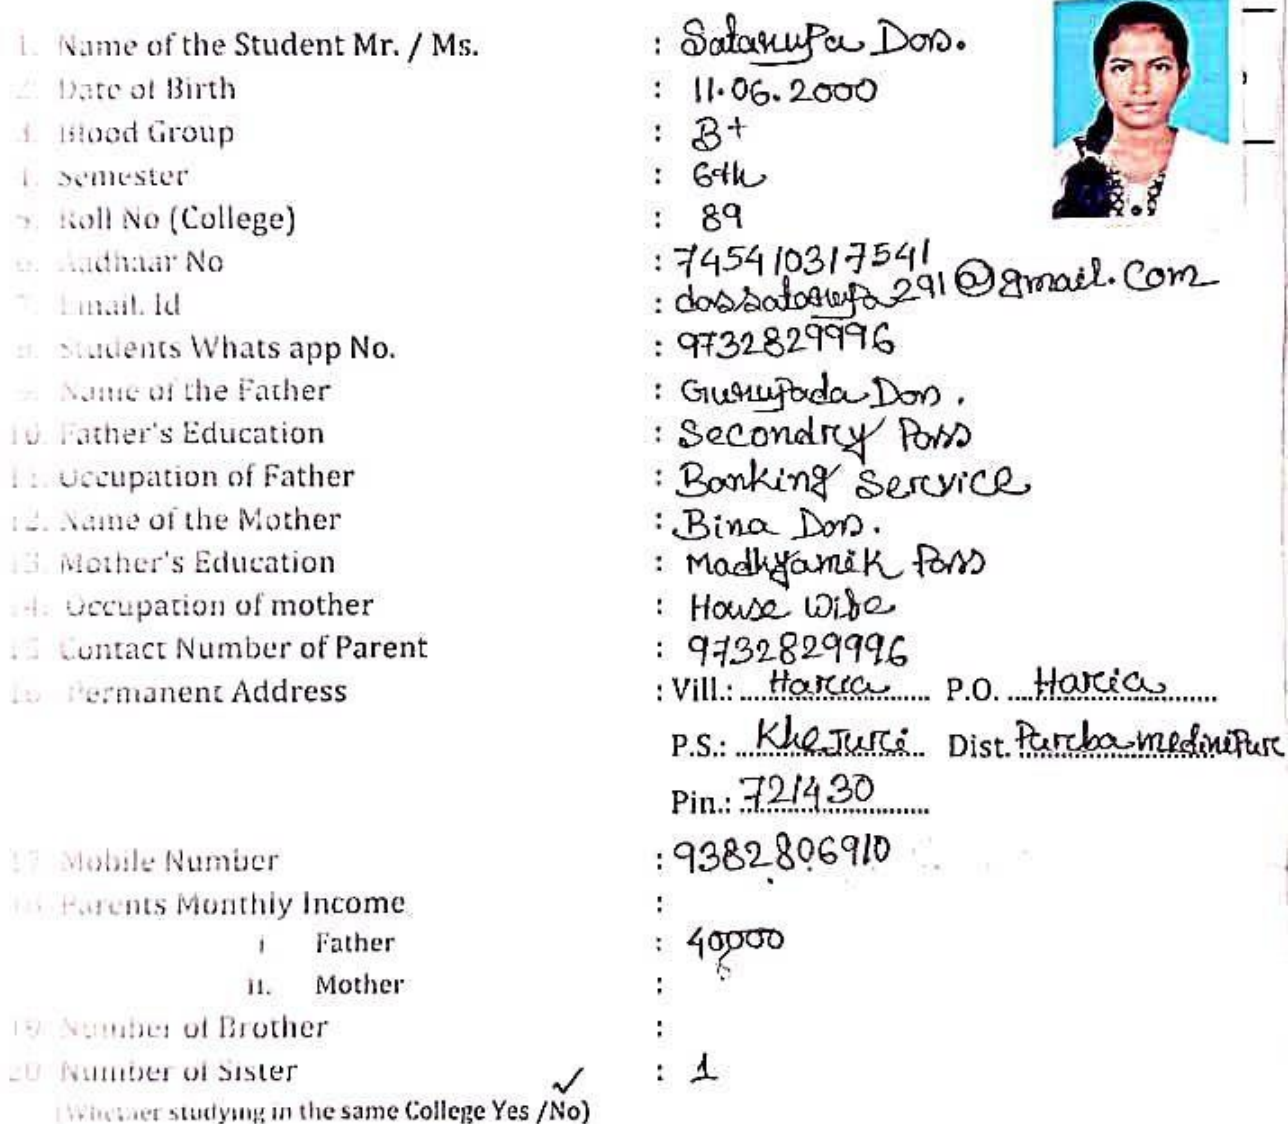 1. Name of the Student Mr. / Ms. : Satarupa Das.
2. Date of Birth : 11.06.2000
3. Blood Group : B+
4. Semester : 6th
5. Roll No (College) : 89
6. Aadhaar No : 745410317541
7. Email. Id : dassatarupa291@gmail.com
8. Students Whats app No. : 9732829996
9. Name of the Father : Gurupada Das.
10. Father's Education : Secondry Pass
11. Occupation of Father : Banking Service
12. Name of the Mother : Bina Das.
13. Mother's Education : Madhyamik Pass
14. Occupation of mother : House Wife
15. Contact Number of Parent : 9732829996
16. Permanent Address : Vill.: Haria P.O. Haria
P.S.: Khejuri Dist. Purba medinipur
Pin.: 721430
17. Mobile Number : 9382806910
18. Parents Monthly Income :
i Father : 40000
ii. Mother :
19. Number of Brother :
20. Number of Sister : 1
(Whether studying in the same College Yes /No) ✓